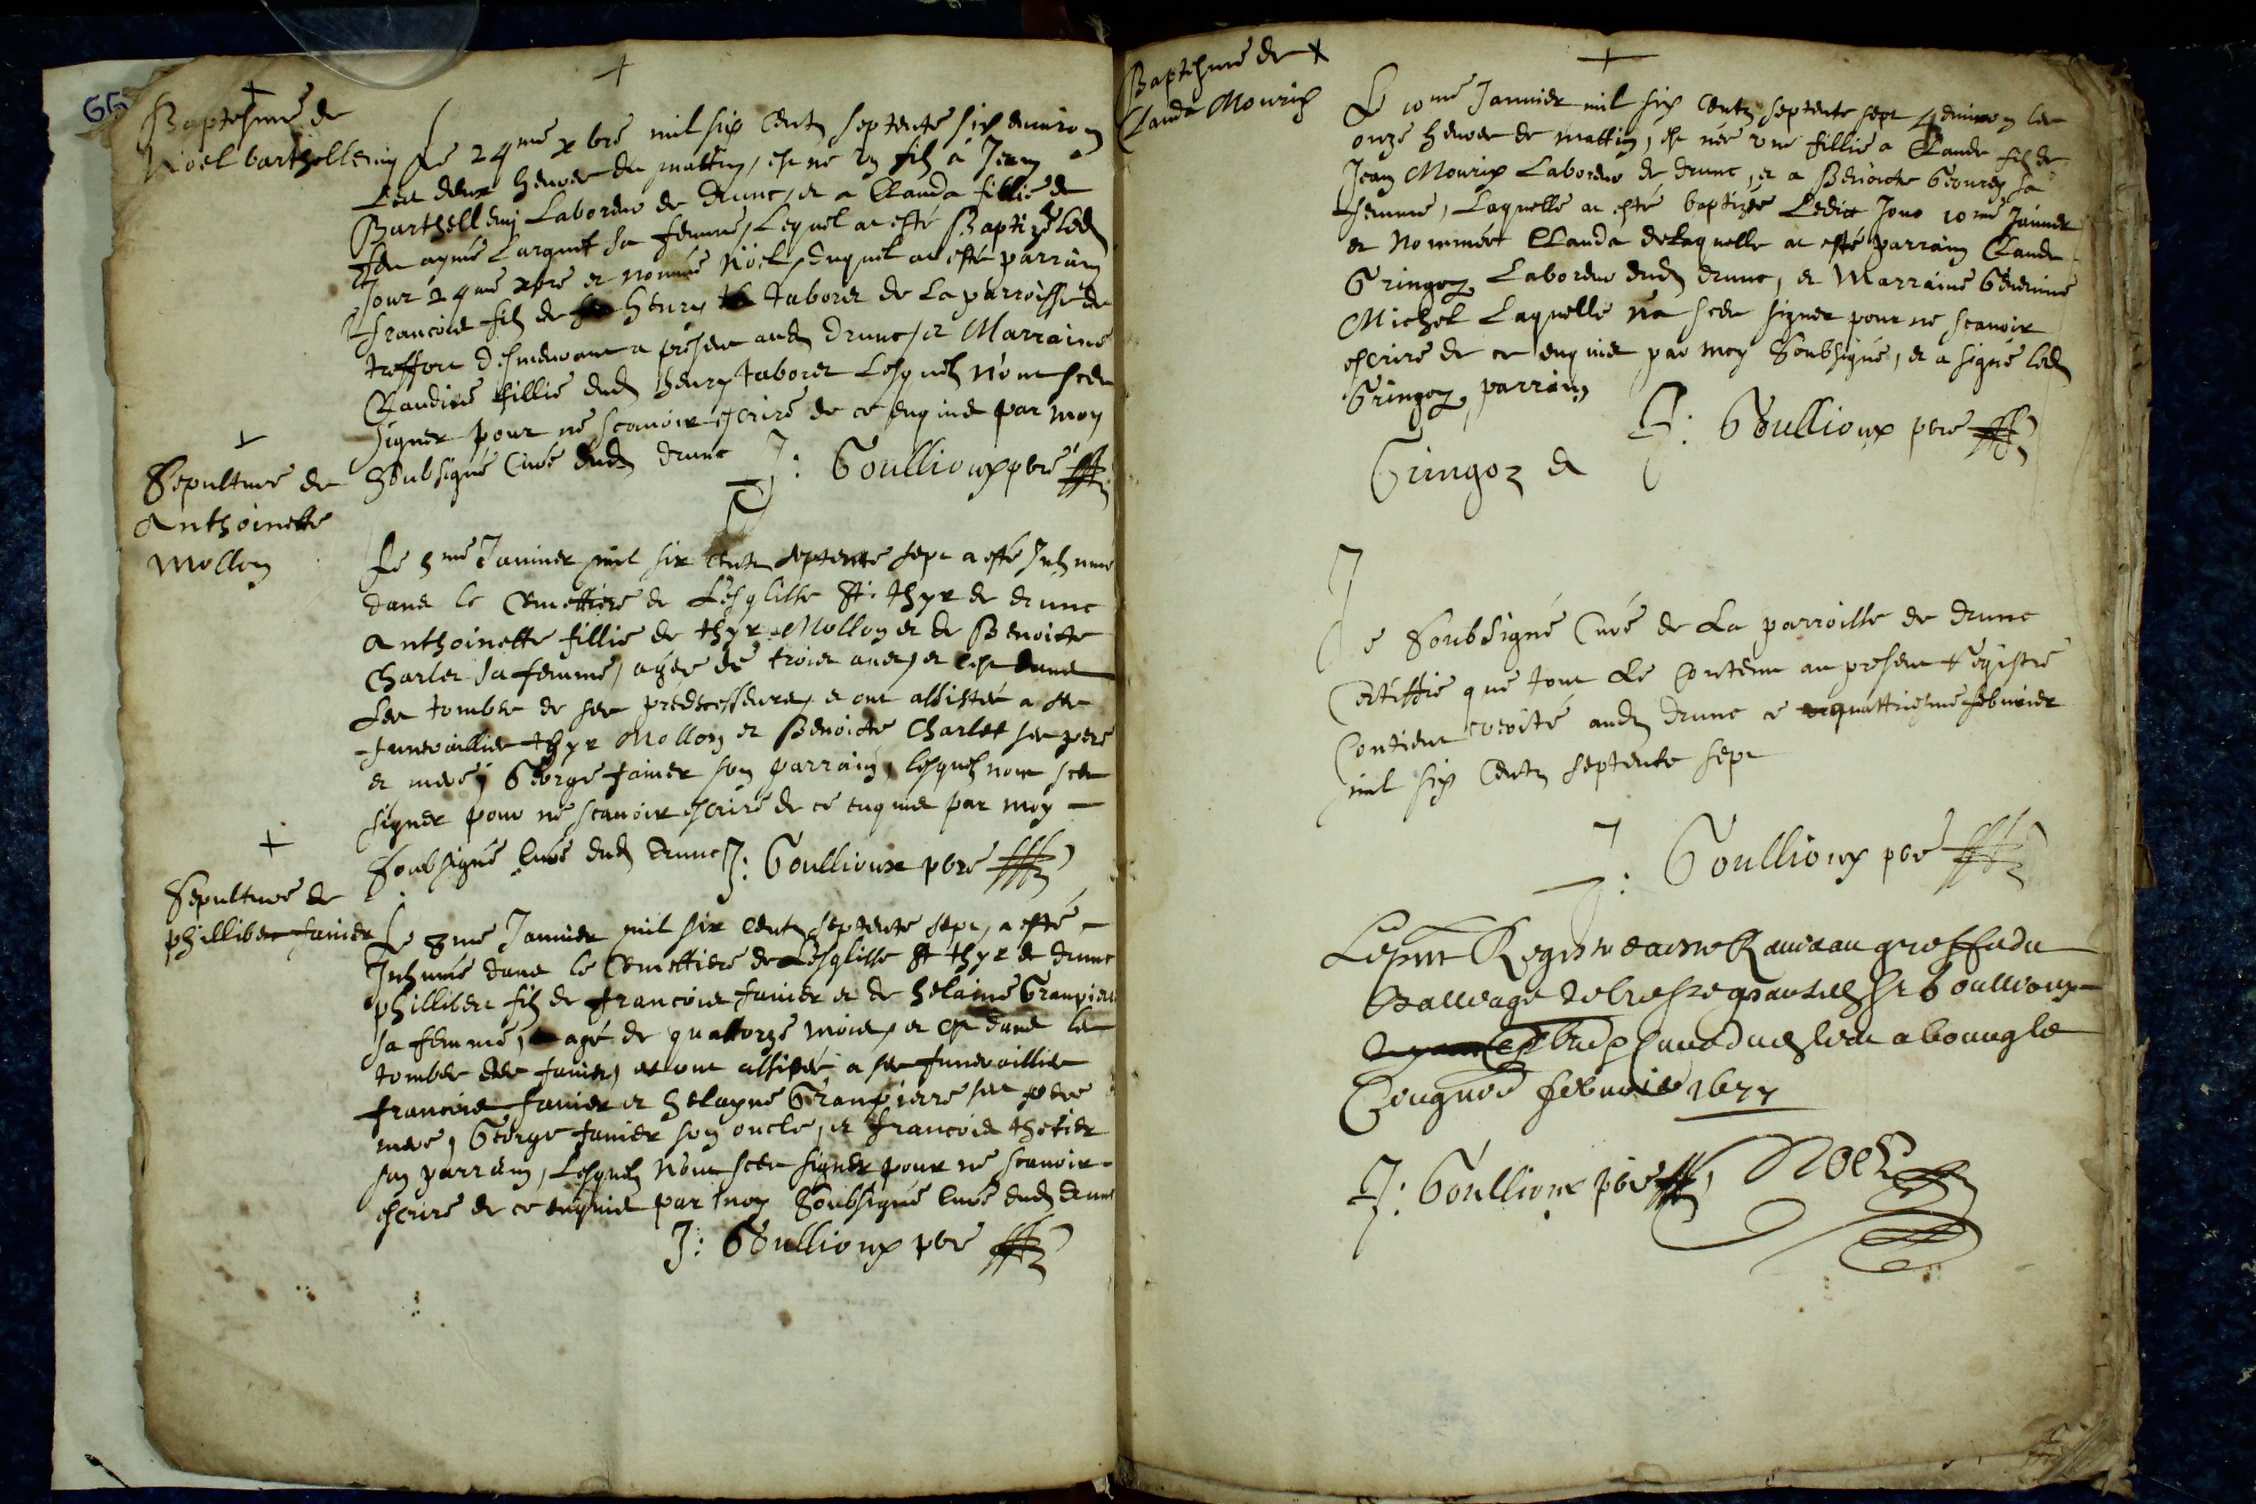 GG
Baptesme de
Noel barthellemy
Le 24me xbre mil six centz septente six environ
Les deux heures du mattin, est né un filz à Jean
Barthellemy Laboreur de drunc, et a Clauda fillie de
feu aymé Largnit sa femme, Lequel at esté Baptizé led
Jour 24me xbre et nommée Noel, duquel at esté parrain
francois filz de henry taboret de La parroisse de
treffort desmeurant a présent aud drunc, et Marraine
Claudine fillie dud henry taboret Lesquelz nont sceu
signer pour ne scavoir escrire de ce enquis par moy
Soubsigné Curé dud drunc J: Goullioux pbre
Sepulture de
Anthoinette
Mollon
Le 5me Janvier mil six centz septente sept a esté Inhumé
dans le Cemettiere de Lesglisse St thyr de drunc
Anthoinette fillie de thyr Mollon et de Benoicte
Charlet sa femme, agée de trois ans, et est dans
Les tombes de ses prédecesseurs, et ont assistée a ses
funerailles thyr Mollon et Benoicte Charlet ses pere
et mere, George Janier son parrain, lesquelz nont sceu
signer pour ne scavoir escrire de ce enquis par moy
Soubsigné Curé dud drunc J: Goullioux pbre
Sepulture de
phillibert Janier
Le 8me Janvier mil six centz septente sept, a esté
Inhumé dans le Cemettiere de Lesglisse St thyr de drunc
phillibert filz de francois Janier et de helaine Granpierre
sa femme, agé de quattorze mois, et est dans les
tombes des Janier, et ont assisté a ses funerailles
francois Janier et helayne Granpierre ses pere
mere, George Janier son oncle, et francois thetier
son parrain, Lesquelz nont sceu signer pour ne scavoir
escrire de ce enquis par moy Soubsigné Curé dud drunc
J: Goullioux pbre
Baptesme de
Clauda Mourix
Le 10me Janvier mil six centz septente sept environ les
onze heures de mattin, est née une fillie a Claude filz de
Jean Mourix Laboreur de drunc, et a Benoicte Geourey sa
femme, Laquelle at esté baptizée Ledict Jour 10me Janvier
et Nommée Clauda de Laquelle at esté parrain Claude
Gringoz Laboreur dud drunc, et Marraine
Michel Laquelle na sceu signer pour ne scavoir
escrire de ce enquise par moy Soubsigné, et a signé led
Gringoz parrain
Gringoz J: Goullioux pbre
Je Soubsigné Curé de La parroisse de drunc
Certiffie que tout Le Contenu au présent Registre
Contient verité aud drunc ce quattriesme febvrier
mil six centz septente sept
J: Goullioux pbre
Le pnt Registre a esté remis au greffe du
Balliage de Bresse par led Sr Goullioux
febvrier 1677
J: Goullioux pbre Noel